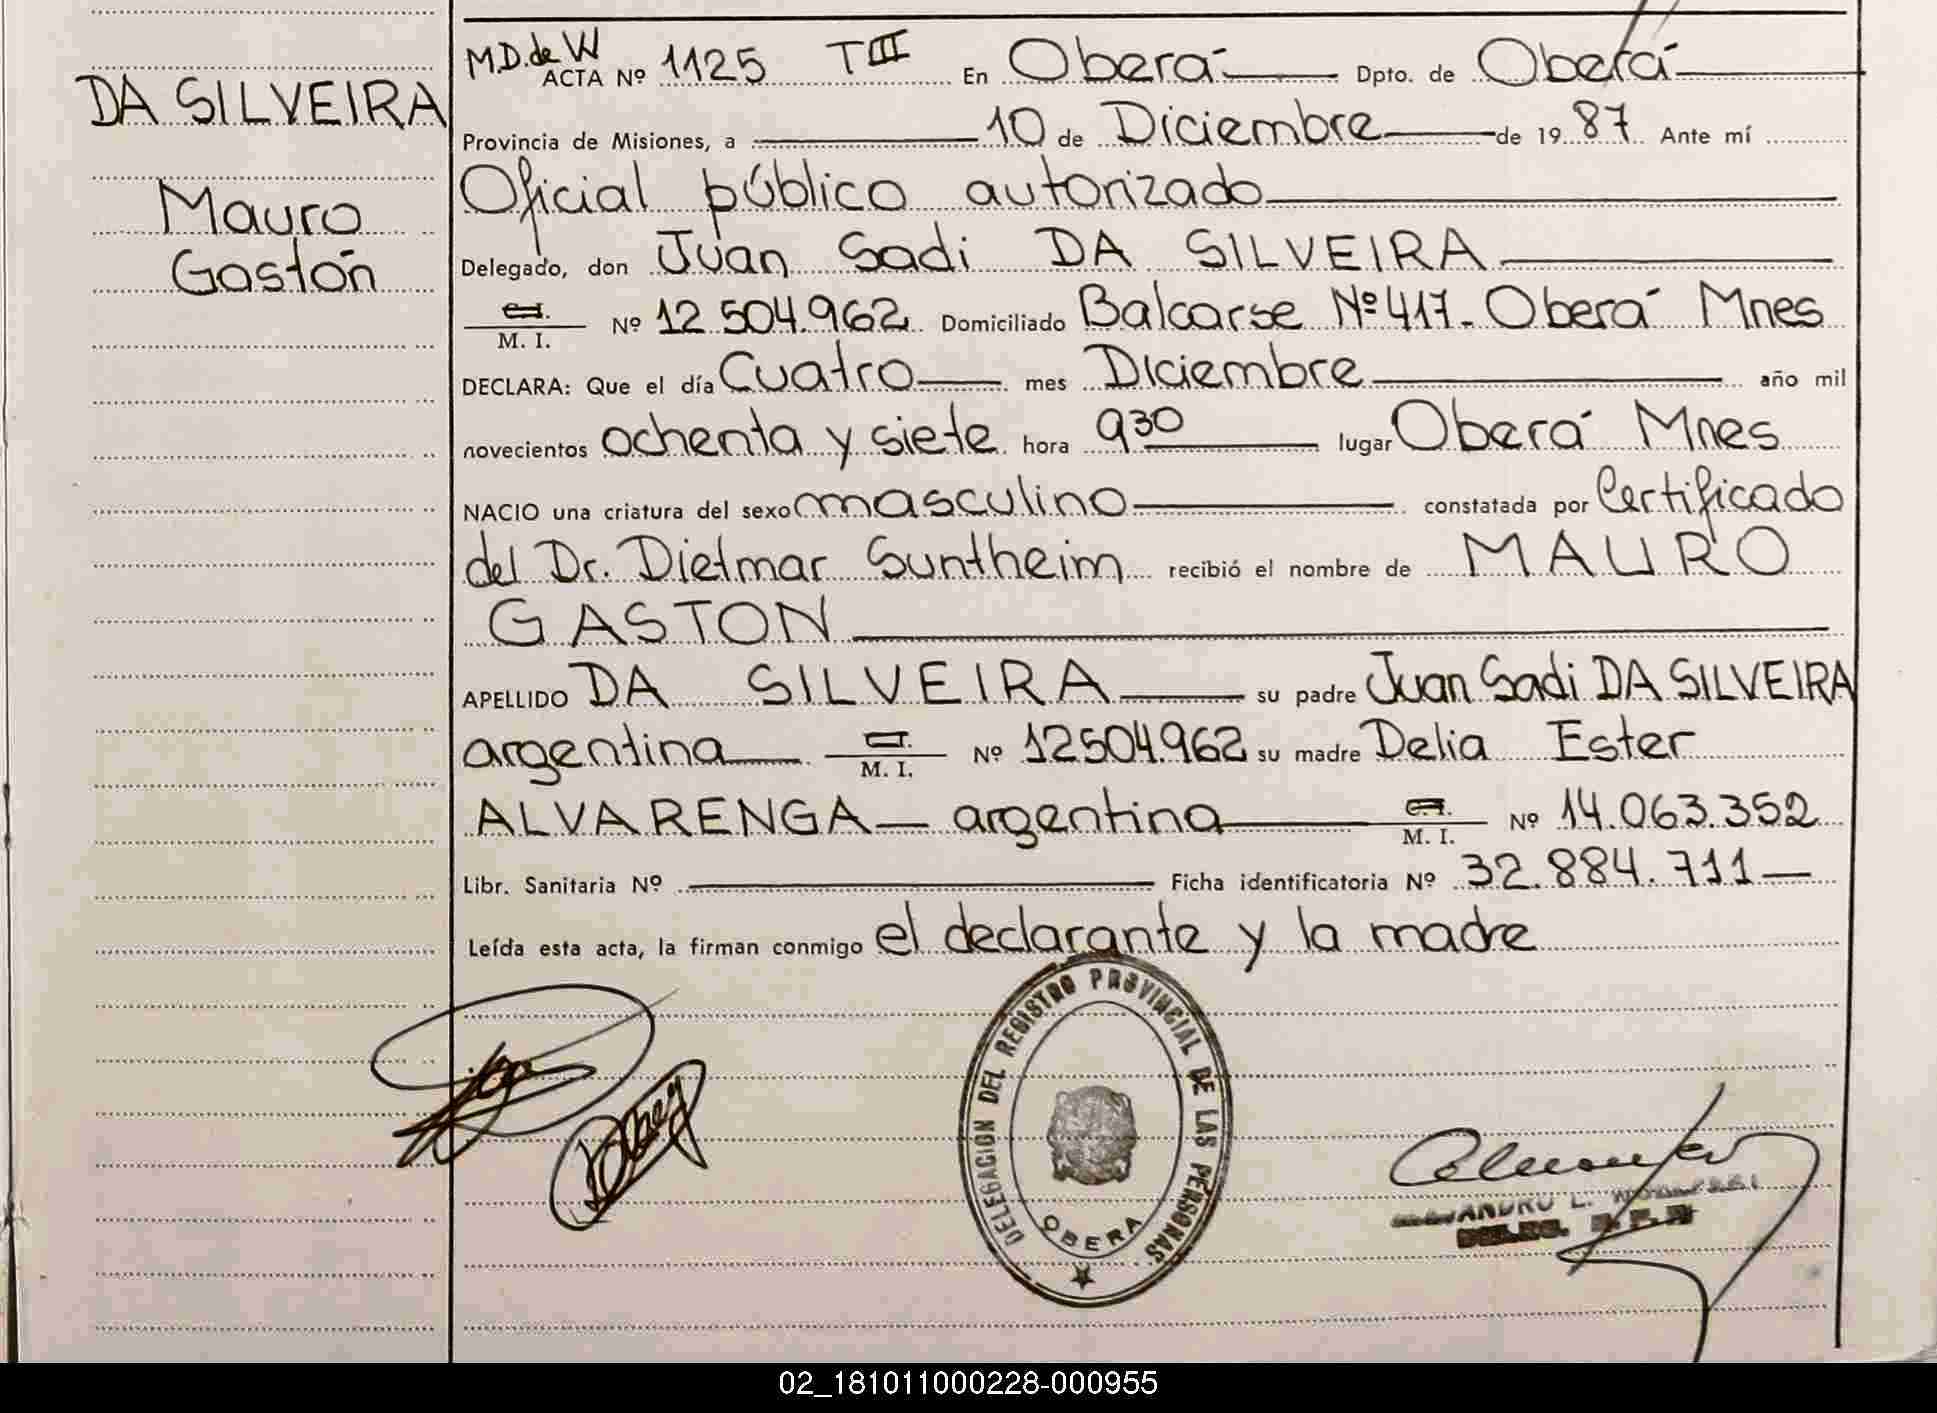 DA SILVEIRA
Mauro
Gastón
M.D. de W
ACTA Nº 1125 TIII En Oberá Dpto. de Oberá
Provincia de Misiones, a 10 de Diciembre de 1987 Ante mí
Oficial público autorizado
Delegado, don Juan Sadi DA SILVEIRA
M. I. Nº 12.504.962 Domiciliado Balcarse Nº 417- Oberá Mnes
DECLARA: Que el día Cuatro mes Diciembre año mil
novecientos ochenta y siete hora 930 lugar Oberá Mnes
NACIO una criatura del sexo masculino constatada por Certificado
del Dr. Dietmar Suntheim recibió el nombre de MAURO
GASTON
APELLIDO DA SILVEIRA su padre Juan Sadi DA SILVEIRA
argentina M. I. Nº 12504.962 su madre Delia Ester
ALVARENGA argentina M. I. Nº 14.063.352
Libr. Sanitaria Nº Ficha identificatoria Nº 32.884.711
Leída esta acta, la firman conmigo el declarante y la madre
DELEGACION DEL REGISTRO PROVINCIAL DE LAS PERSONAS.
OBERA
02_181011000228-000955